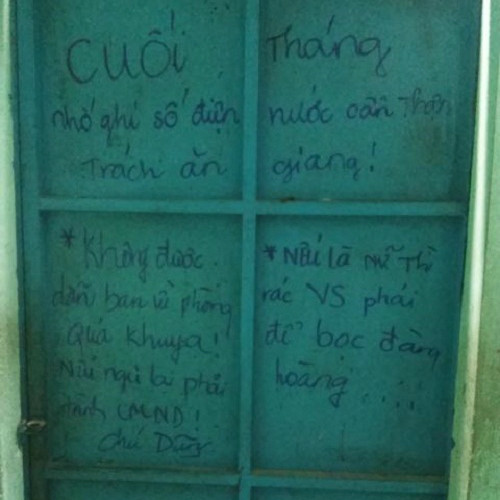 CUỐI Tháng
nhớ ghi số điện nước cẩn Thận
Trách ăn giang!
* Không được
dẫn bạn về phòng
Quá khuya!
Nếu ngủ lại phải
trình CMND!
chú Dũng
* Nếu là nữ Thì
rác VS phải
để bọc đàng
hoàng....